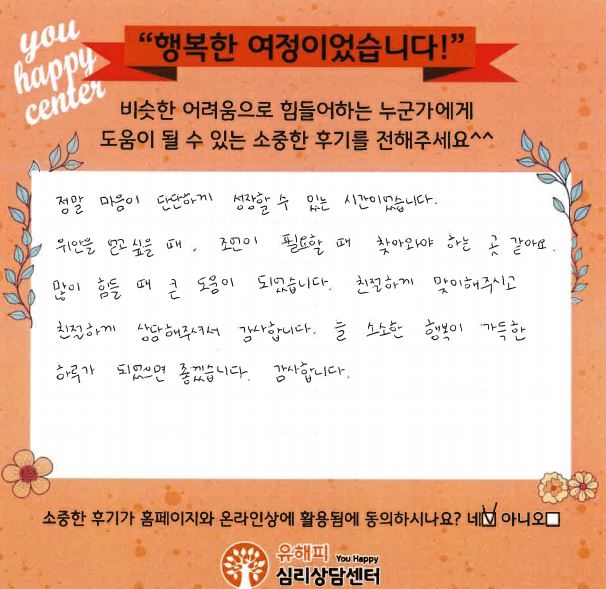 you
happy
center
“행복한 여정이었습니다!”
비슷한 어려움으로 힘들어하는 누군가에게
도움이 될 수 있는 소중한 후기를 전해주세요^^
정말 마음이 단단하게 성장할 수 있는 시간이었습니다.
위안을 얻고 싶을 때, 조언이 필요할 때 찾아와야 하는 곳 같아요.
많이 힘들 때 큰 도움이 되었습니다. 친절하게 맞이해주시고
친절하게 상담해주셔서 감사합니다. 늘 소소한 행복이 가득한
하루가 되었으면 좋겠습니다. 감사합니다.
소중한 후기가 홈페이지와 온라인상에 활용됨에 동의하시나요? 네☑ 아니오□
유해피 You Happy
심리상담센터